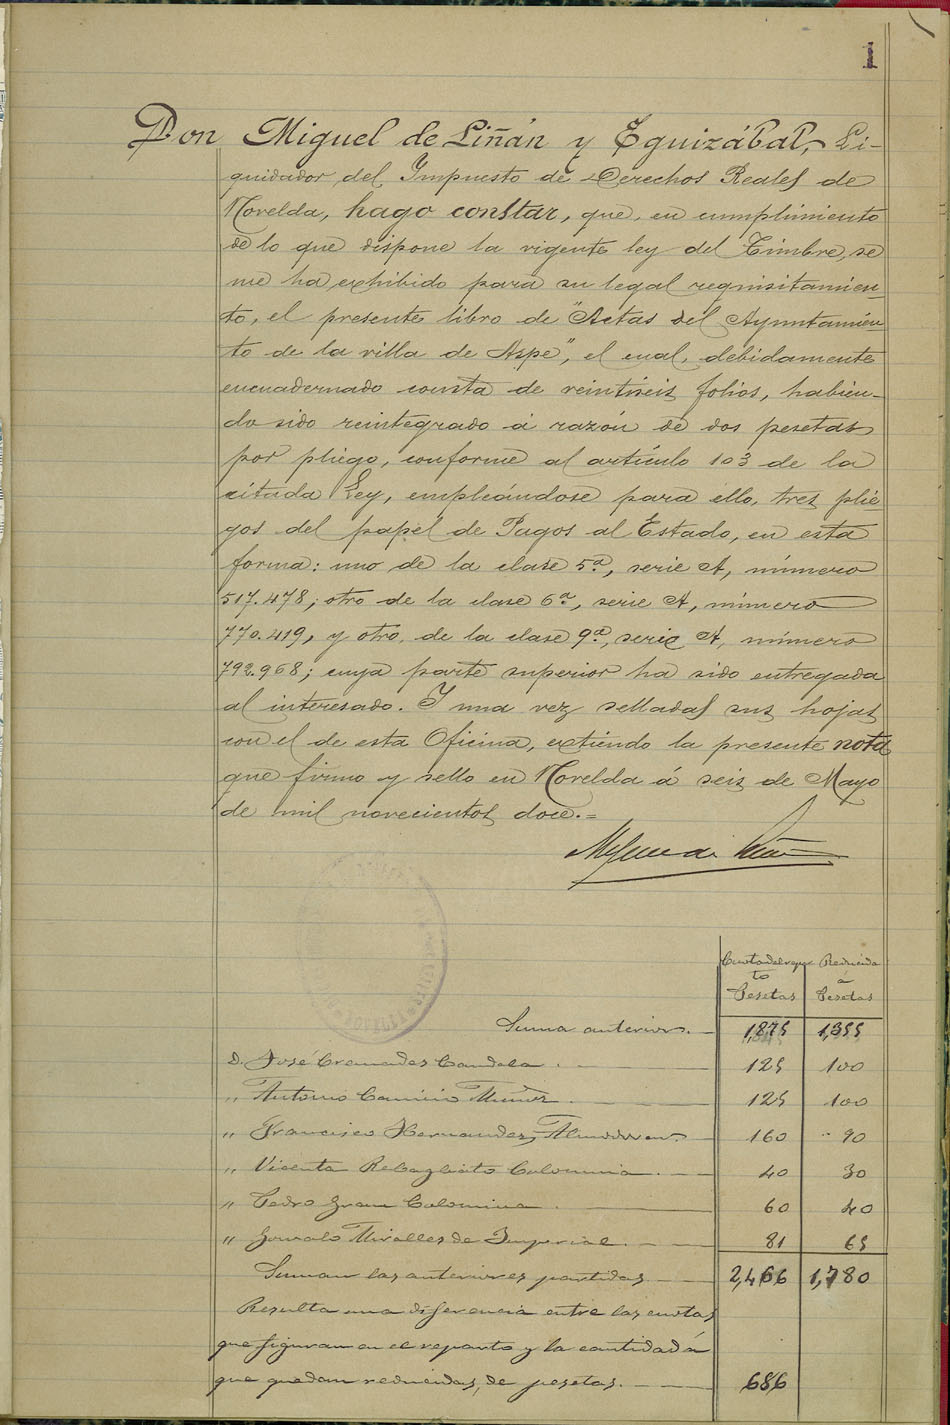 1
Don Miguel de Liñán y Eguizábal, Li-
quidador del Impuesto de Derechos Reales de
Novelda, hago constar, que, en cumplimiento
de lo que dispone la vigente ley del Timbre, se
me ha exhibido para su legal requisitamien-
to, el presente libro de "Actas del Ayuntamien
to de la villa de Aspe", el cual, debidamente
encuadernado consta de veintiseis folios, habien-
do sido reintegrado á razón de dos pesetas
por pliego, conforme al artículo 103 de la
citada Ley, empleándose para ello, tres plie-
gos del papel de Pagos al Estado, en esta
forma: uno de la clase 5ª, serie A, número
517.478; otro de la clase 6ª, serie A, número
770.419, y otro de la clase 9ª, serie A, número
792.968; cuya parte superior ha sido entregada
al interesado. Y una vez selladas sus hojas
con el de esta Oficina, extiendo la presente nota
que firmo y sello en Novelda á seis de Mayo
de mil novecientos doce.=
Miguel de Liñán
Cuota del repar Reducida
to á
Pesetas Pesetas
Suma anterior. 1,875 1,355
D. José Cremades Candela 125 100
" Antonio Cañizo Muñoz 125 100
" Francisco Hernandez Almodovar 160 90
" Vicenta Rebagliato Colomina 40 30
" Pedro Gran Colomina 60 40
" Gonzalo Miralles de Imperial 81 65
Suman las anteriores partidas 2,466 1,780
Resulta una diferencia entre las cuotas
que figuran en el reparto y la cantidad á
que quedan reducidas, de pesetas. 686